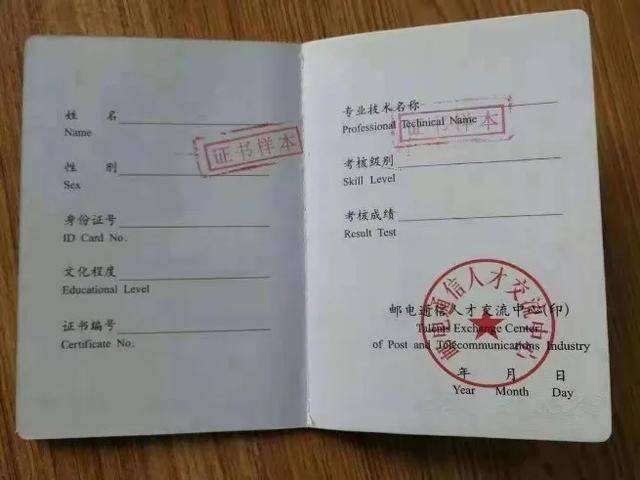 姓 名
Name
证书样本
性 别
Sex
身份证号
ID Card No.
文化程度
Educational Level
证书编号
Certificate No.
专业技术名称
Professional Technical Name
证书样本
考核级别
Skill Level
考核成绩
Result Test
邮电通信人才交流中心
邮电通信人才交流中心(印)
Talents Exchange Center
of Post and Telecommunications Industry
年 月 日
Year Month Day